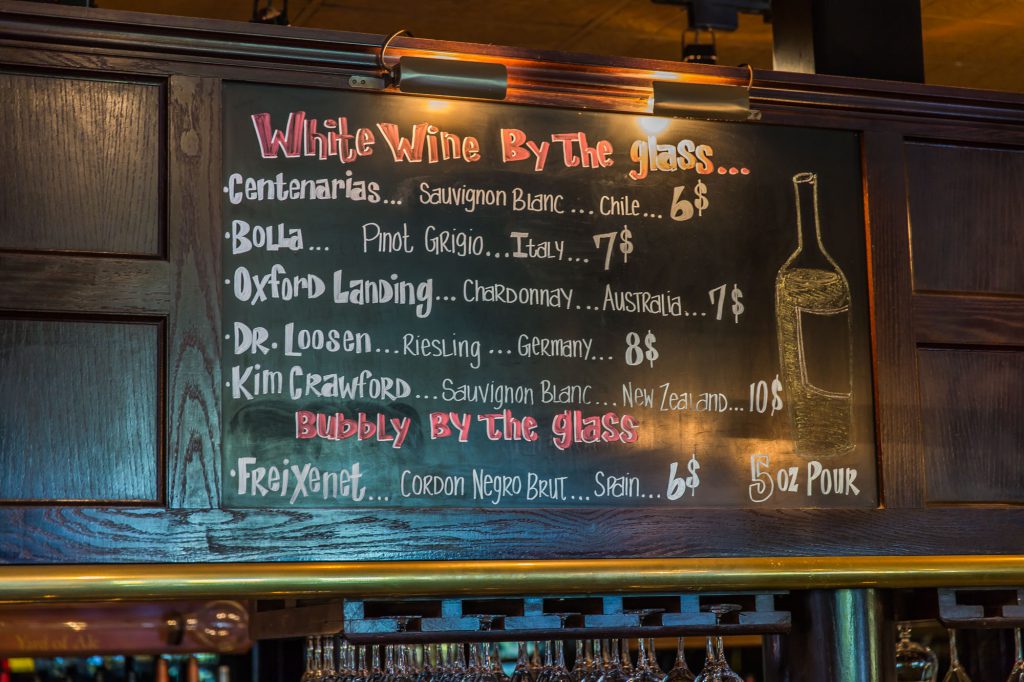 White Wine By The glass...
·Centenarias... Sauvignon Blanc... Chile... 6$
·Bolla... Pinot Grigio... Italy... 7$
·Oxford Landing... Chardonnay... Australia... 7$
·Dr. Loosen... Riesling... Germany... 8$
·Kim Crawford... Sauvignon Blanc... New Zealand... 10$
Bubbly By The glass
·Freixenet... Cordon Negro Brut... Spain... 6$
5 oz Pour
Yard of Ale